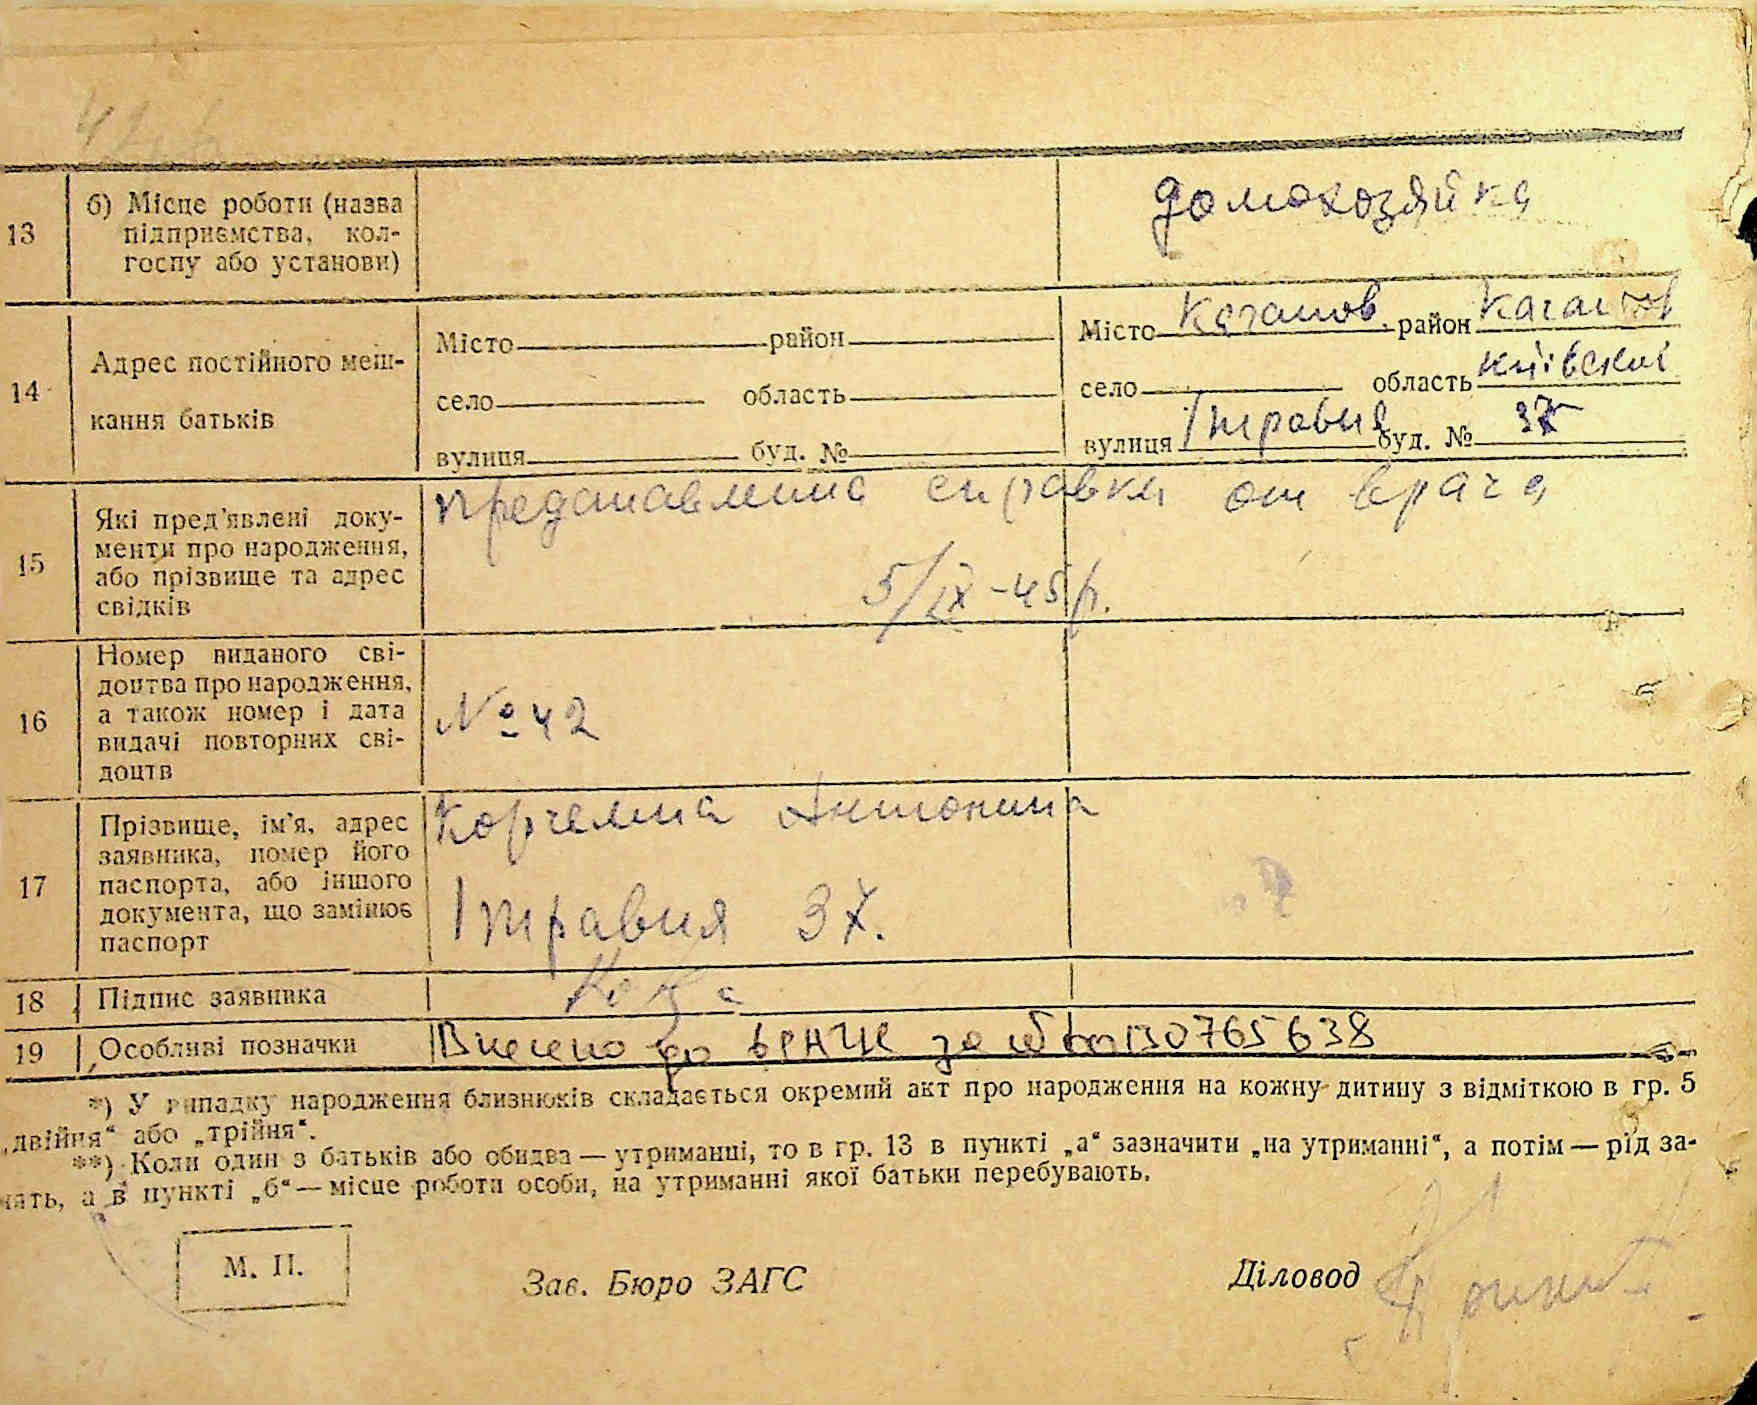 13 б) Місце роботи (назва підприємства, кол-
госпу або установи)
домохозяйка
14 Адрес постійного меш-
кання батьків
Місто район
село область
вулиця буд. №
Місто Каганов, район Каганов
село область Київской
вулиця 1 травня буд. № 37
15 Які пред’явлені доку-
менти про народження,
або прізвище та адрес
свідків
представлена справка от врача
5/IX-45 р.
16 Номер виданого сві-
доцтва про народження,
а також номер і дата
видачі повторних сві-
доцтв
№ 42
17 Прізвище, ім’я, адрес
заявника, номер його
паспорта, або іншого
документа, що замінює
паспорт
Корчемна Антонина
1 травня 37.
18 Підпис заявника
19 Особливі позначки
Внесено до ДРАЦС за № 00130765638
*) У випадку народження близнюків складається окремий акт про народження на кожну дитину з відміткою в гр. 5
„двійня“ або „трійня“.
**) Коли один з батьків або обидва — утриманці, то в гр. 13 в пункті „а“ зазначити „на утриманні“, а потім — рід за-
нять, а в пункті „б“ — місце роботи особи, на утриманні якої батьки перебувають.
М. П.
Зав. Бюро ЗАГС
Діловод